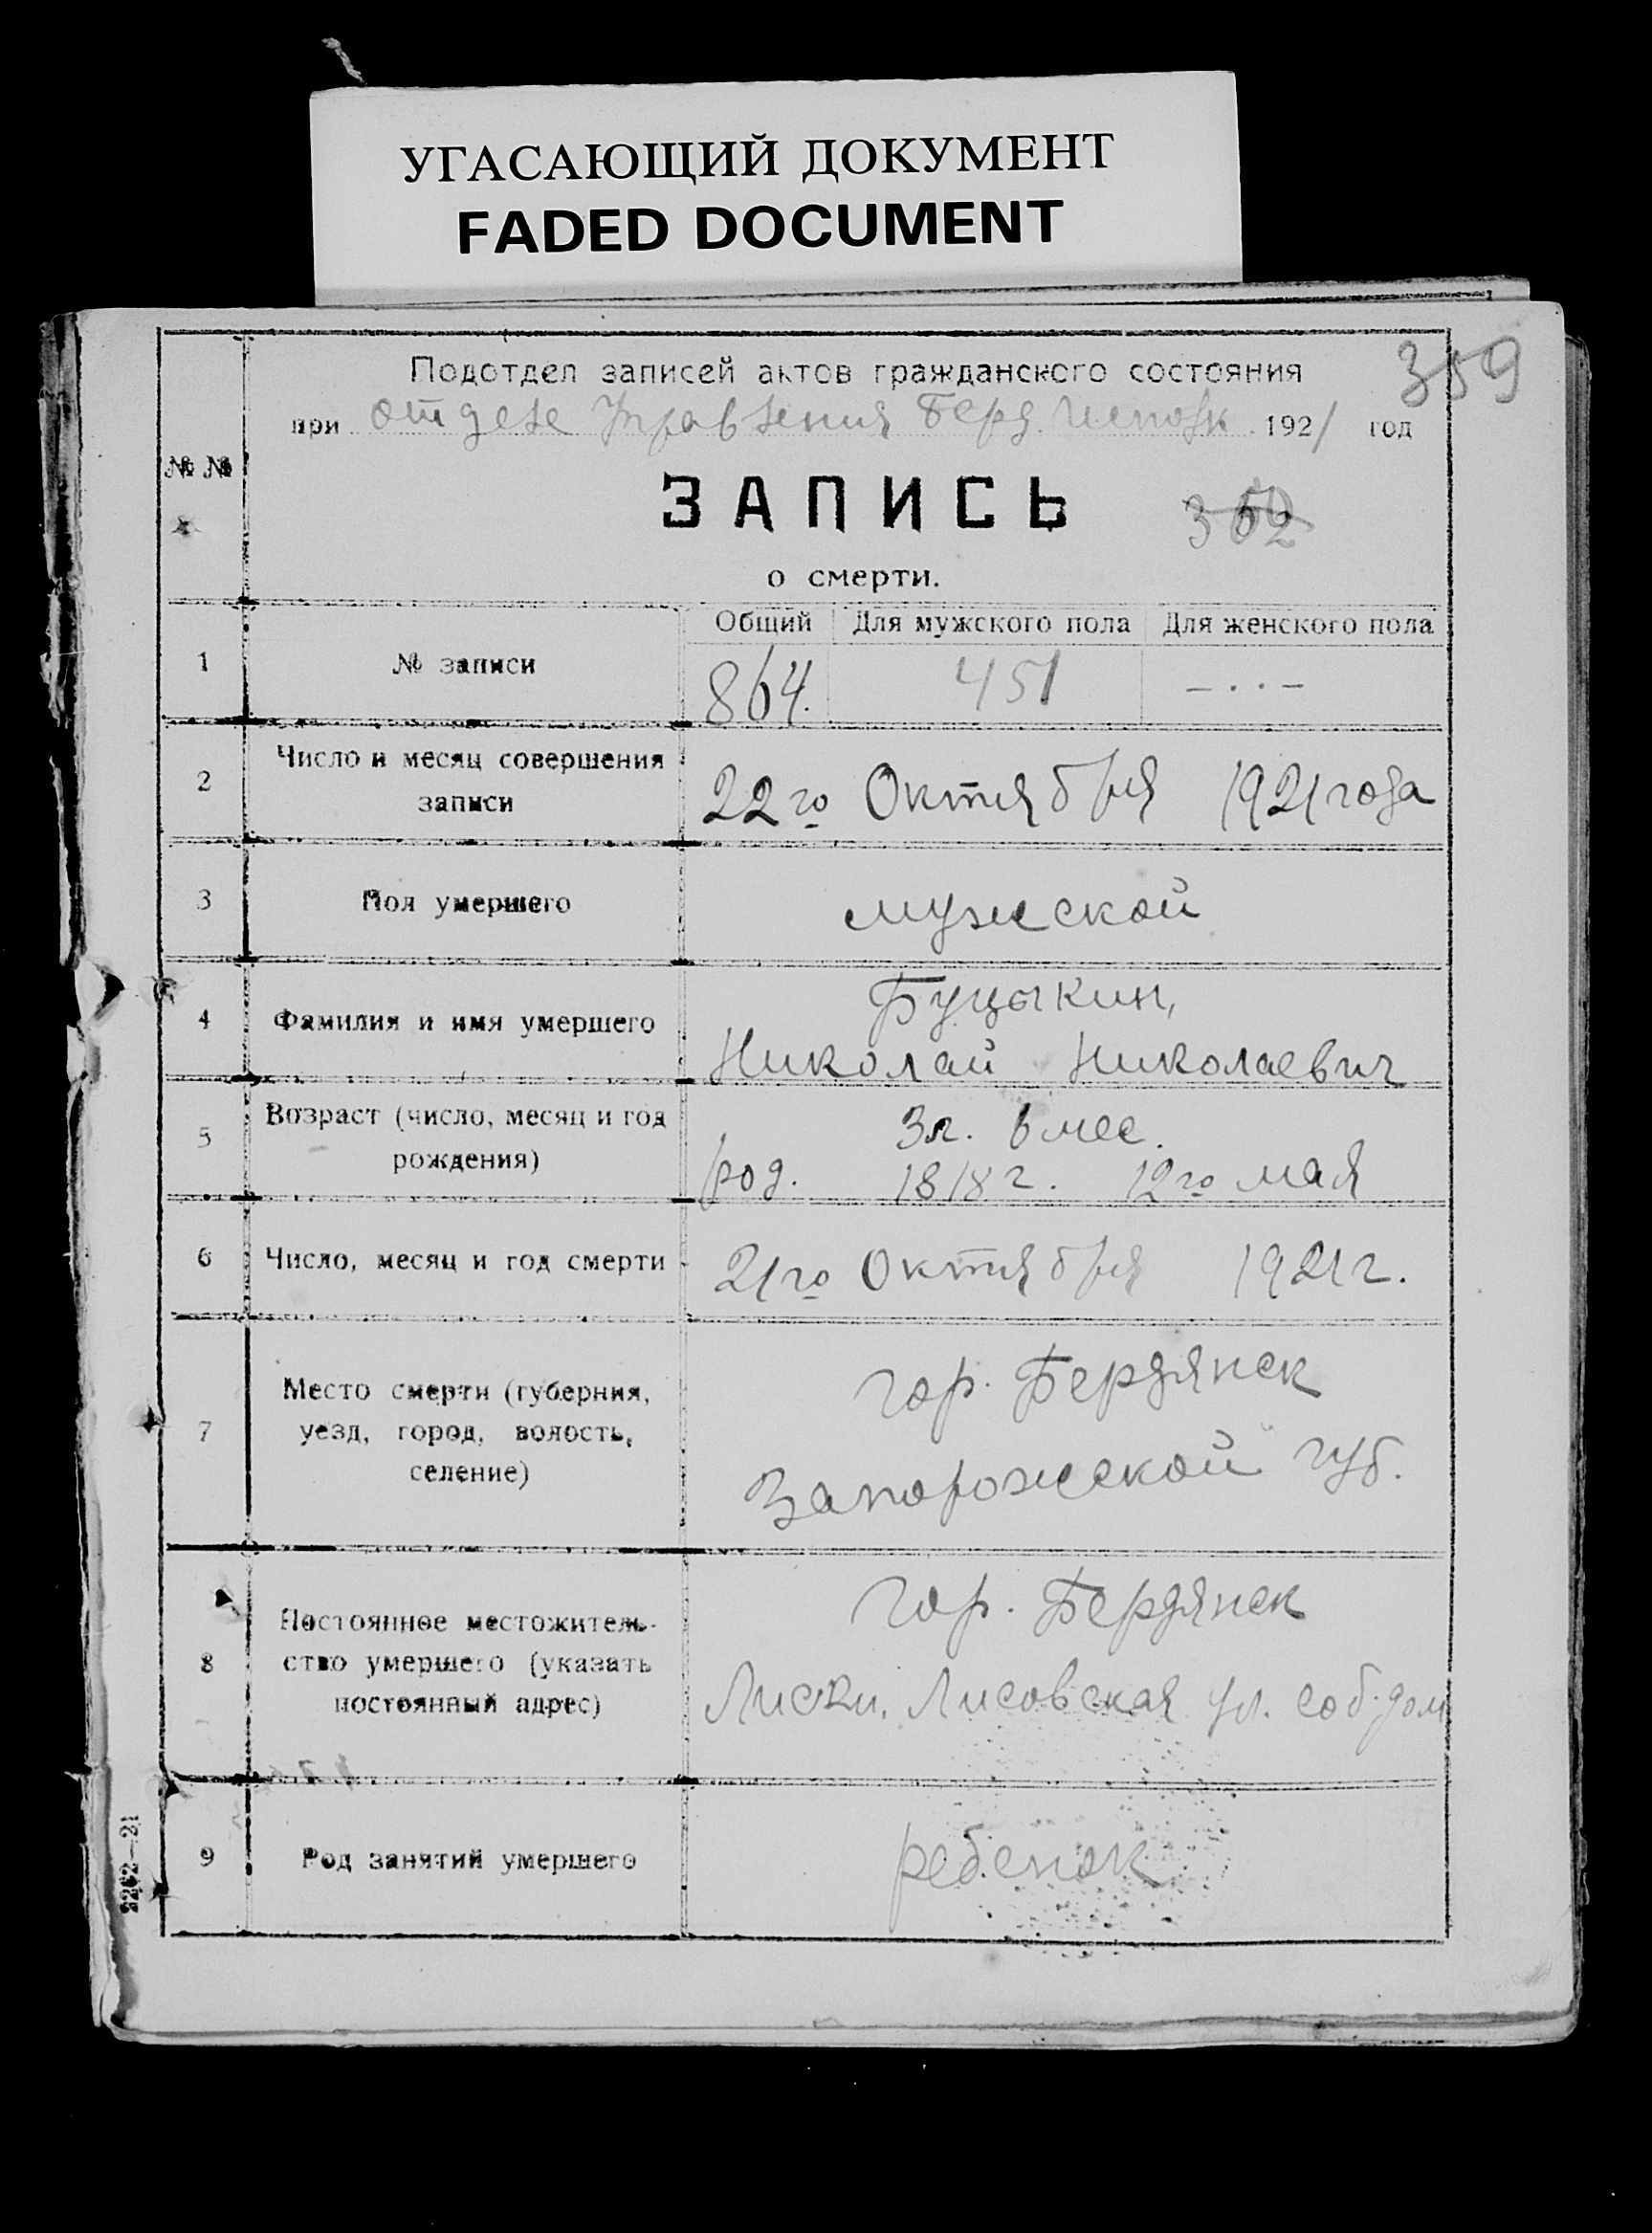 УГАСАЮЩИЙ ДОКУМЕНТ
FADED DOCUMENT
359
Подотдел записей актов гражданского состояния
при отделе Управления Берд. Исполк 1921 год
№ №
ЗАПИСЬ
352
о смерти.
Общий Для мужского пола Для женского пола
1 № записи 864. 451 – · · –
2 Число и месяц совершения
записи
22го Октября 1921 года
3 Пол умершего мужской
4 Фамилия и имя умершего
Буцыкин,
Николай Николаевич
5 Возраст (число, месяц и год
рождения)
3 л. 6 мес.
род. 1818 г. 12го мая
6 Число, месяц и год смерти 21го Октября 1921 г.
7 Место смерти (губерния,
уезд, город, волость,
селение)
гор. Бердянск
Запорожской губ.
8 Постоянное местожитель-
ство умершего (указать
постоянный адрес)
гор. Бердянск
Лиски, Лисовская ул. соб. дом
9 Род занятий умершего ребенок
3262—21